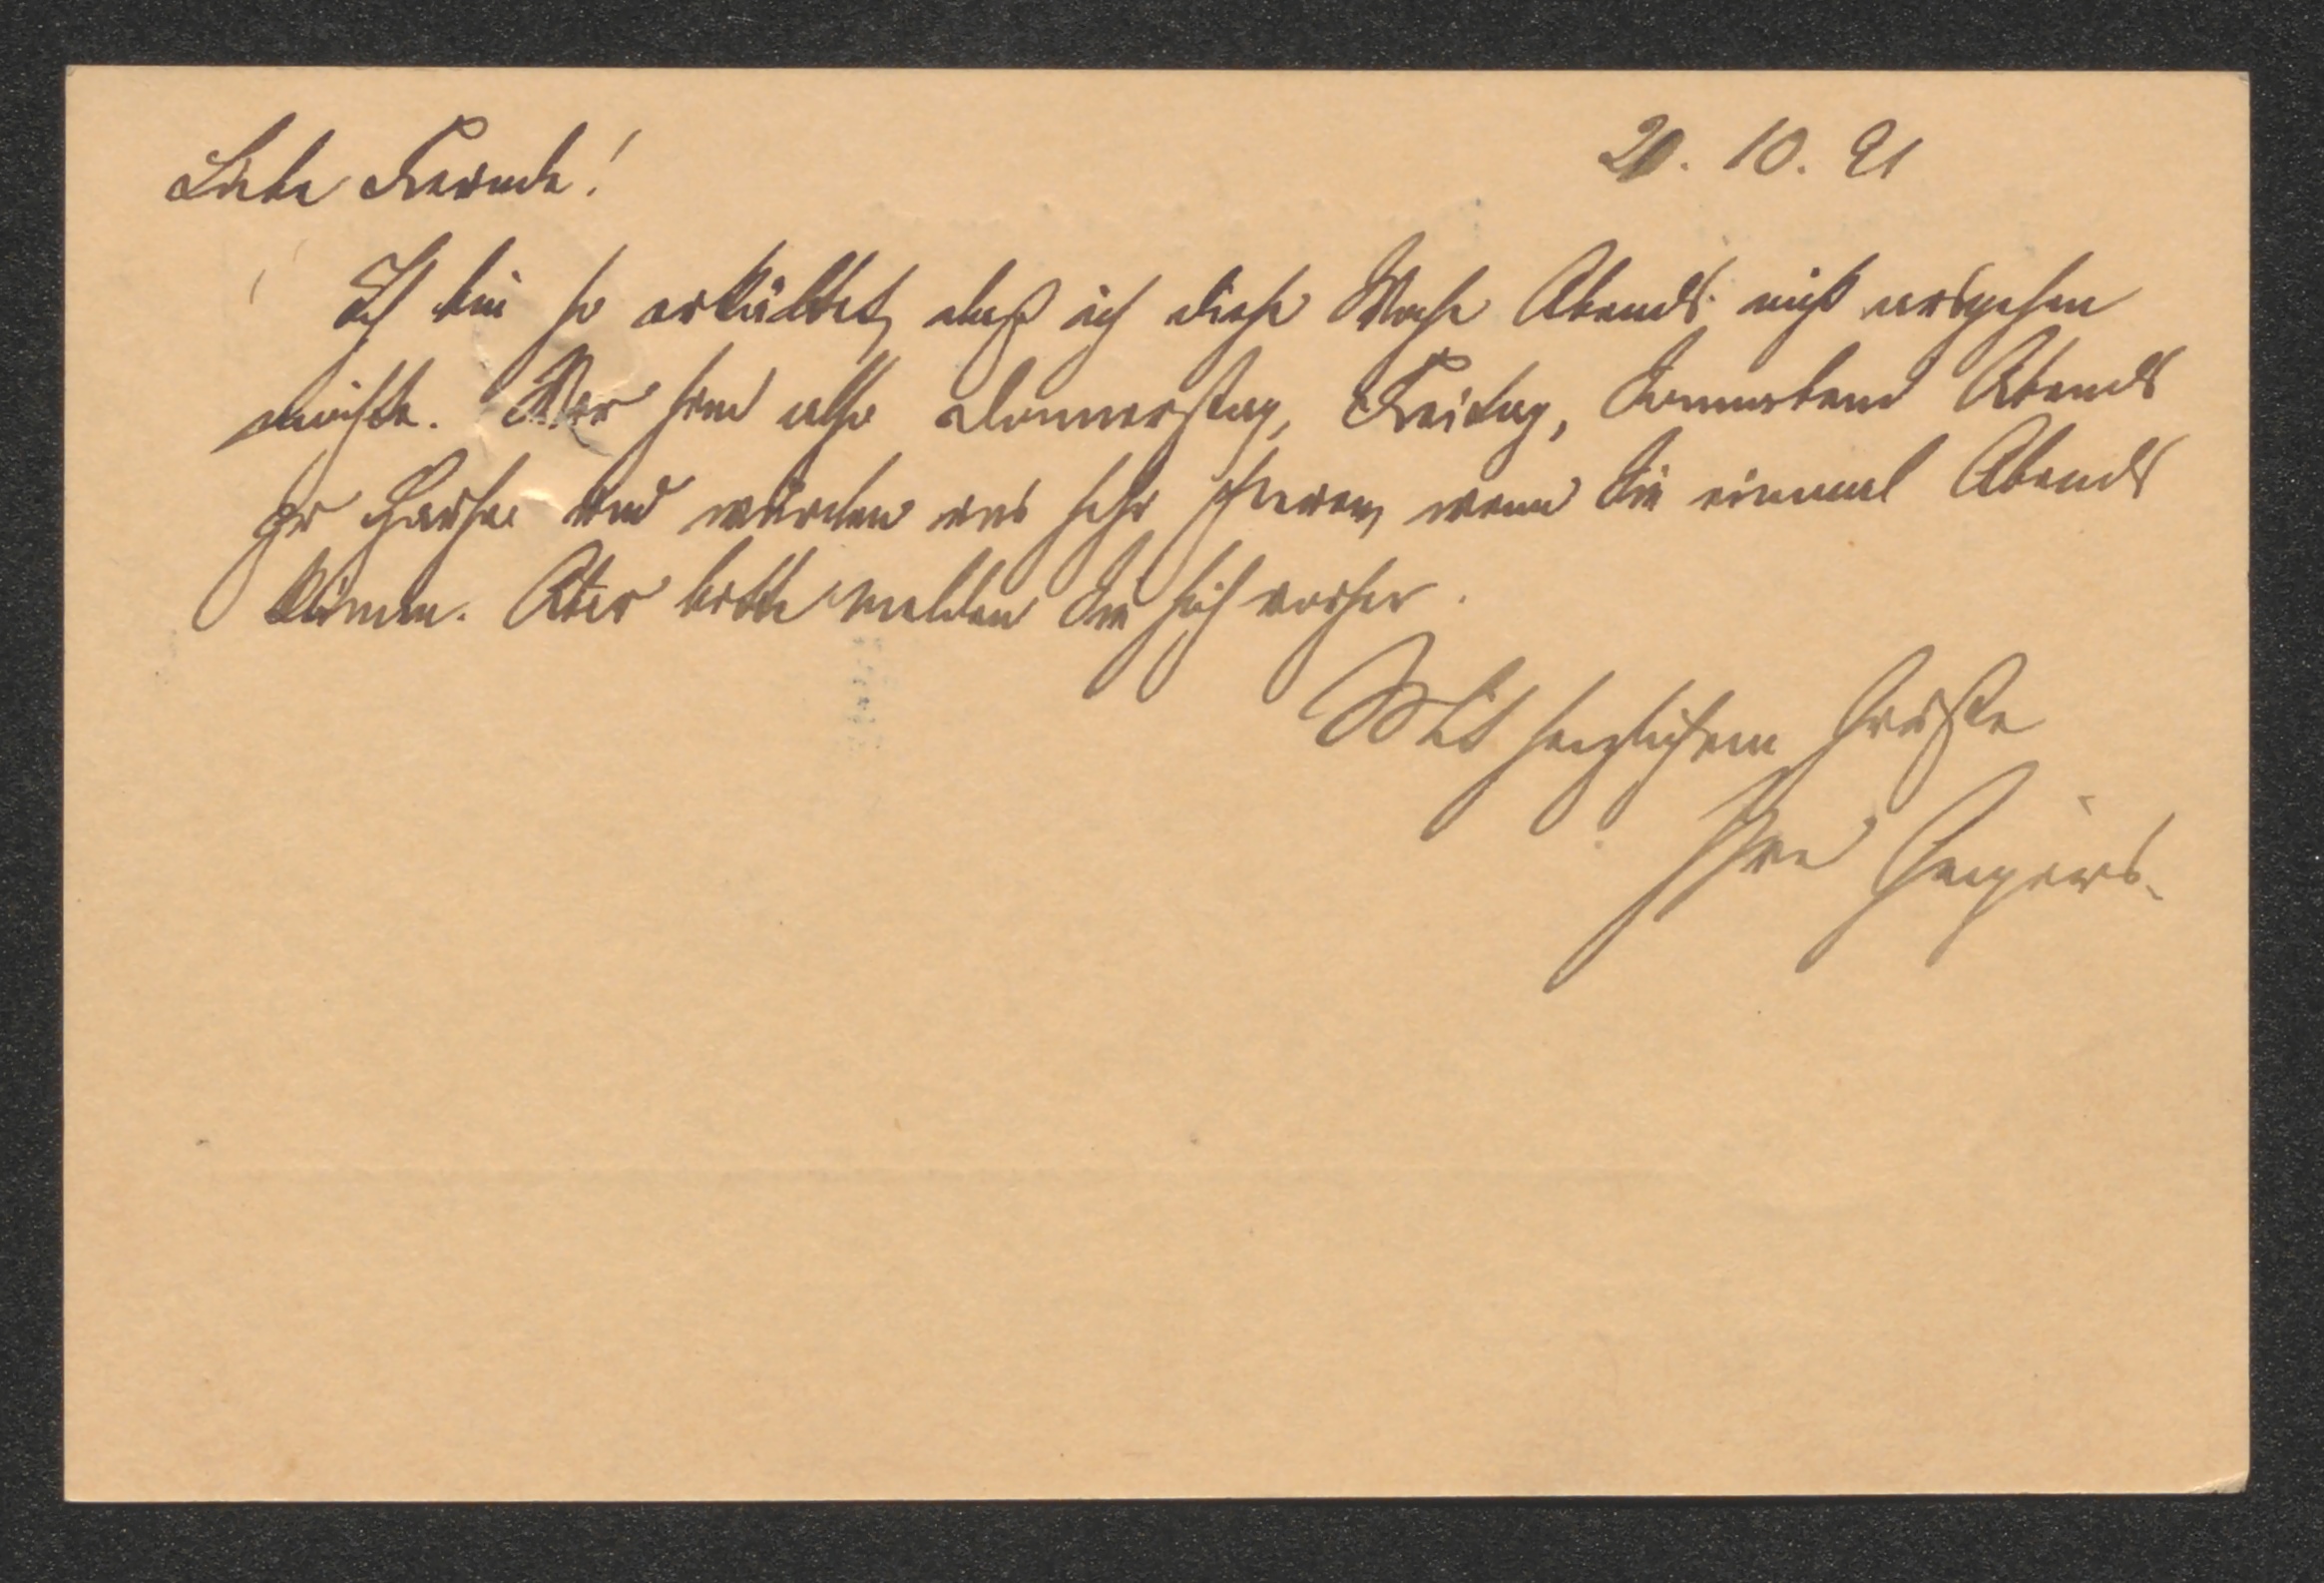 20. 10. 91
Liebe Freunde!
Ich bin so erkältet, daß ich diese Woche Abends nicht ausgehen
möchte. Wir sind also Donnerstag, Freitag, Sonnabend Abends
zu Hause und würden uns sehr freuen, wenn Sie einmal Abends
kämen. Aber bitte melden Sie sich vorher.
Mit herzlichem Gruße
Ihre